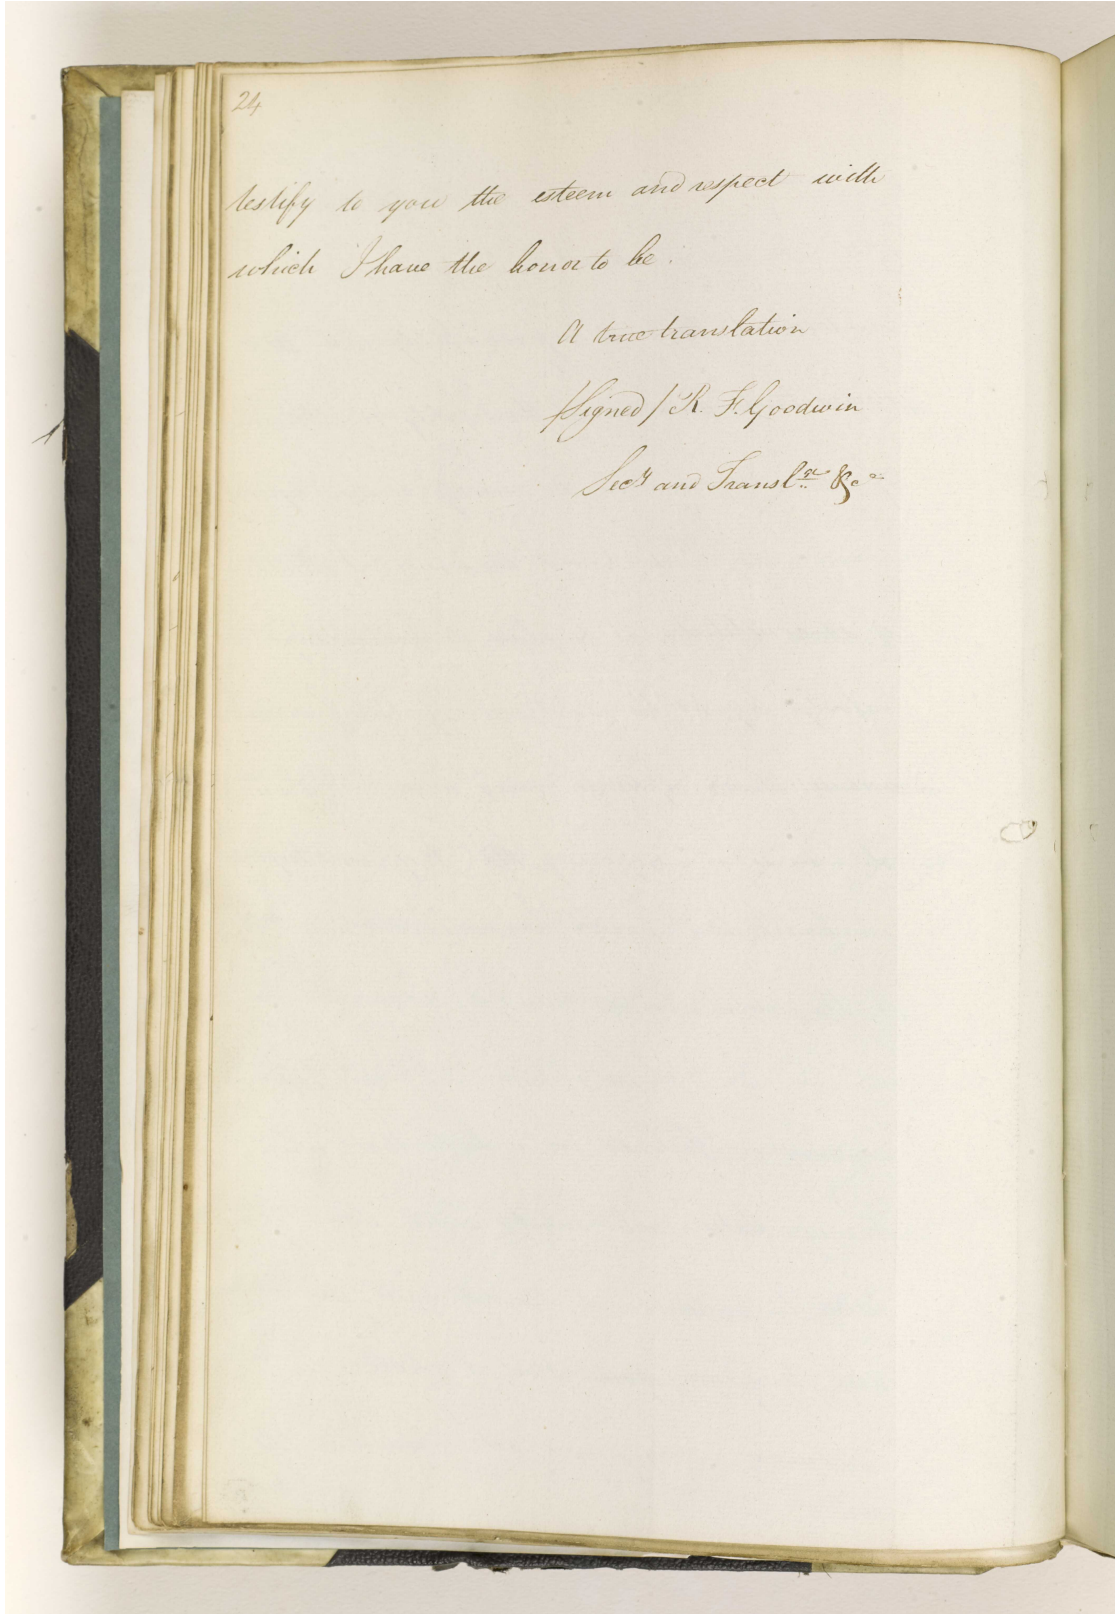 24
testify to you the esteem and respect with
which I have the honor to be.
A true translation
/Signed/ R. F. Goodwin
Secy and Translr &ca